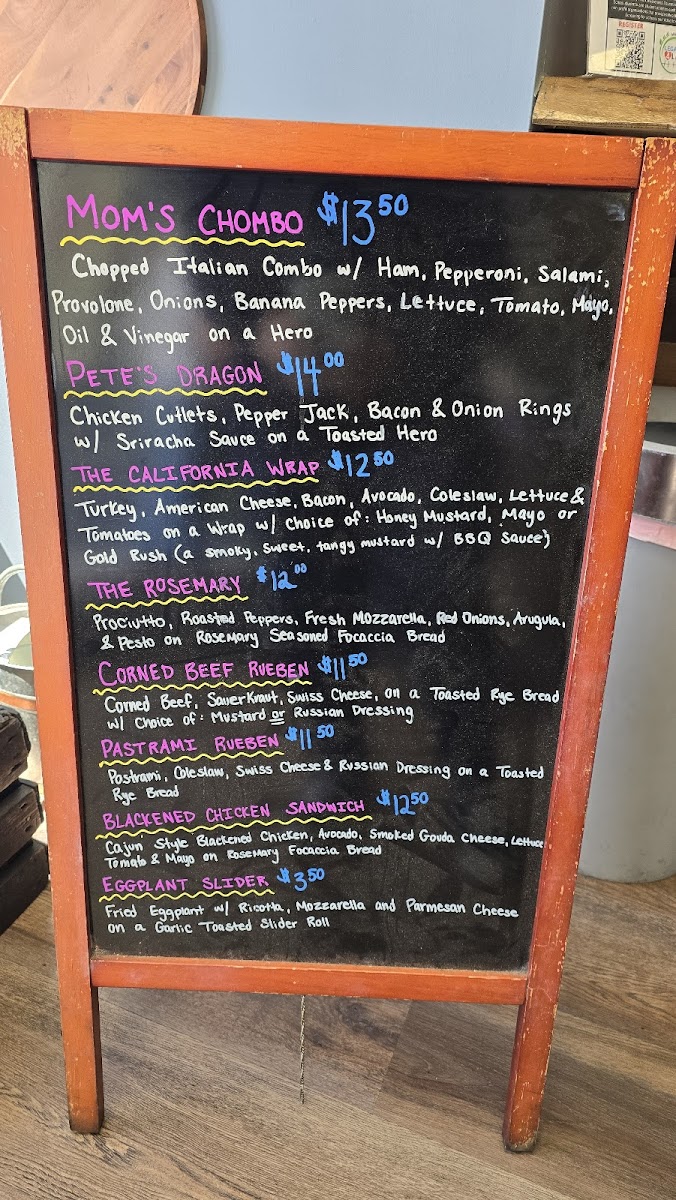 REGISTER
MOM'S CHOMBO $13.50
Chopped Italian Combo w/ Ham, Pepperoni, Salami,
Provolone, Onions, Banana Peppers, Lettuce, Tomato, Mayo,
Oil & Vinegar on a Hero
PETE'S DRAGON $14.00
Chicken Cutlets, Pepper Jack, Bacon & Onion Rings
w/ Sriracha Sauce on a Toasted Hero
THE CALIFORNIA WRAP $12.50
Turkey, American Cheese, Bacon, Avocado, Coleslaw, Lettuce &
Tomatoes on a Wrap w/ Choice of: Honey Mustard, Mayo or
Gold Rush (a smoky, sweet, tangy mustard w/ BBQ Sauce)
THE ROSEMARY $12.00
Prociutto, Roasted Peppers, Fresh Mozzarella, Red Onions, Arugula,
& Pesto on Rosemary Seasoned Focaccia Bread
CORNED BEEF RUEBEN $11.50
Corned Beef, Sauerkraut, Swiss Cheese, on a Toasted Rye Bread
w/ Choice of: Mustard or Russian Dressing
PASTRAMI RUEBEN $11.50
Pastrami, Coleslaw, Swiss Cheese & Russian Dressing on a Toasted
Rye Bread
BLACKENED CHICKEN SANDWICH $12.50
Cajun Style Blackened Chicken, Avocado, Smoked Gouda Cheese, Lettuce
Tomato & Mayo on Rosemary Focaccia Bread
EGGPLANT SLIDER $3.50
Fried Eggplant w/ Ricotta, Mozzarella and Parmesan Cheese
on a Garlic Toasted Slider Roll